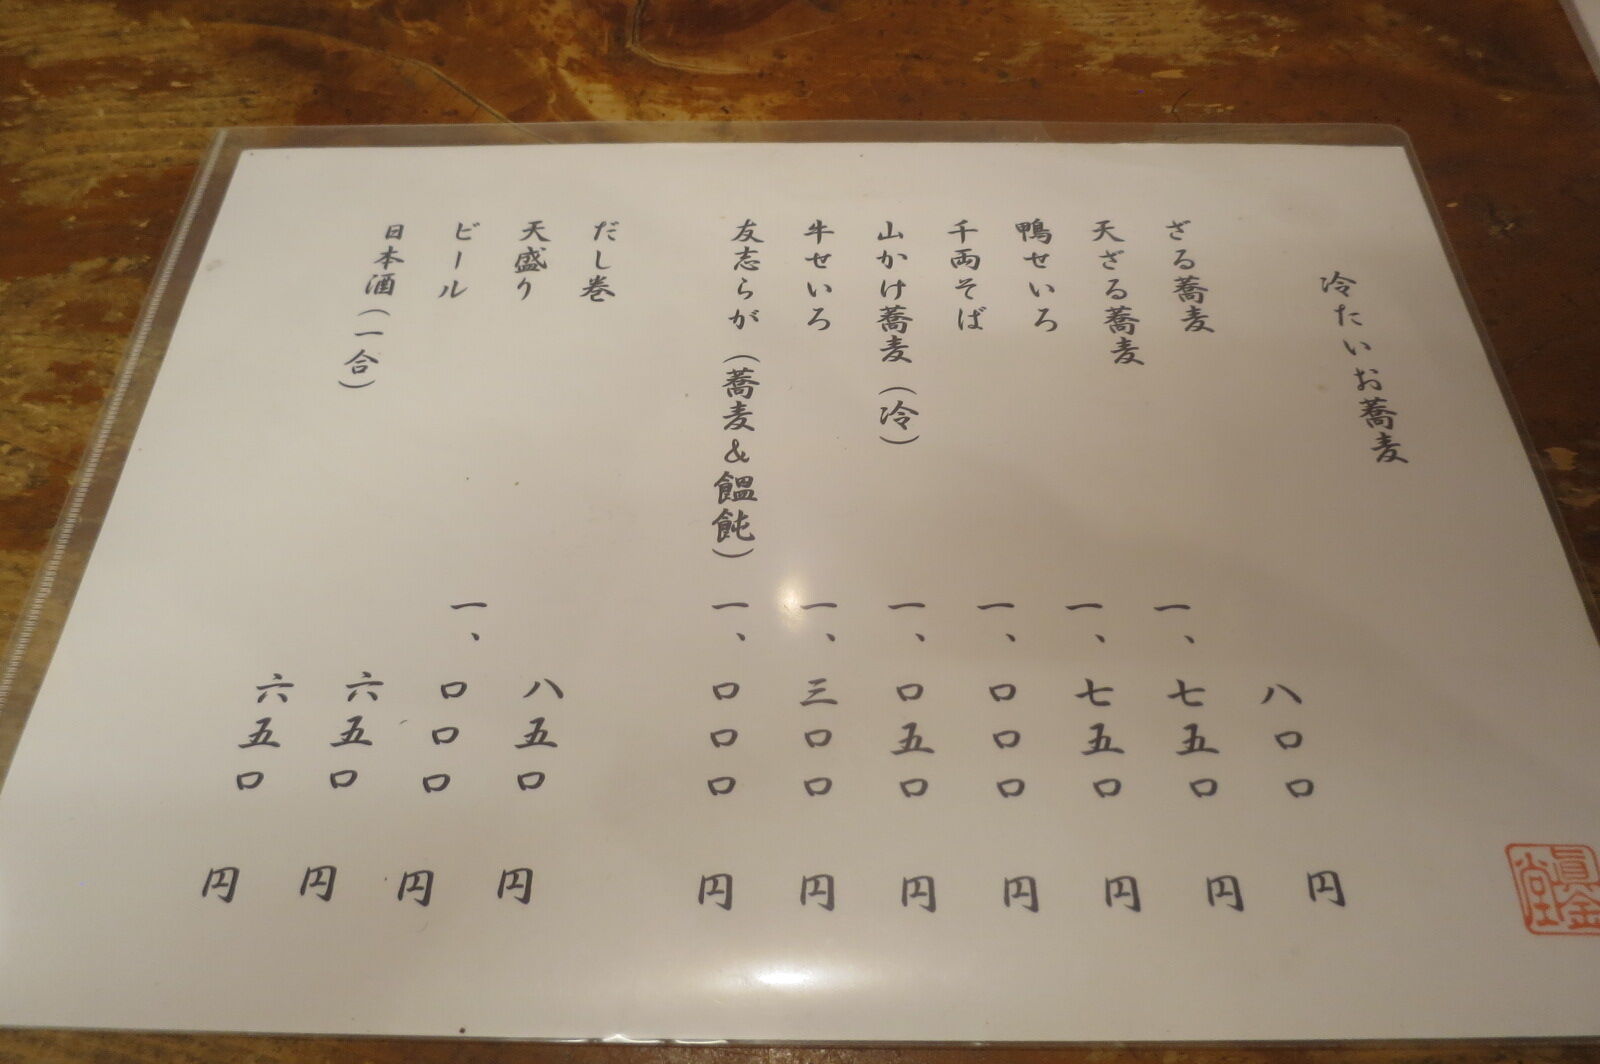 冷たいお蕎麦
ざる蕎麦 八〇〇円
天ざる蕎麦 一、七五〇円
鴨せいろ 一、七五〇円
千両そば 一、〇〇〇円
山かけ蕎麦（冷） 一、〇五〇円
牛せいろ 一、三〇〇円
友志らが（蕎麦&饂飩） 一、〇〇〇円
だし巻 八五〇円
天盛り 一、〇〇〇円
ビール 六五〇円
日本酒（一合） 六五〇円